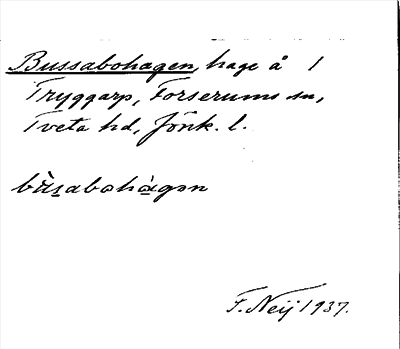 Bussabohagen, hage å 1
Tryggarp, Forserums sn,
Tveta hd, Jönk. l.
bùsabohàgən
F. Neij 1937.